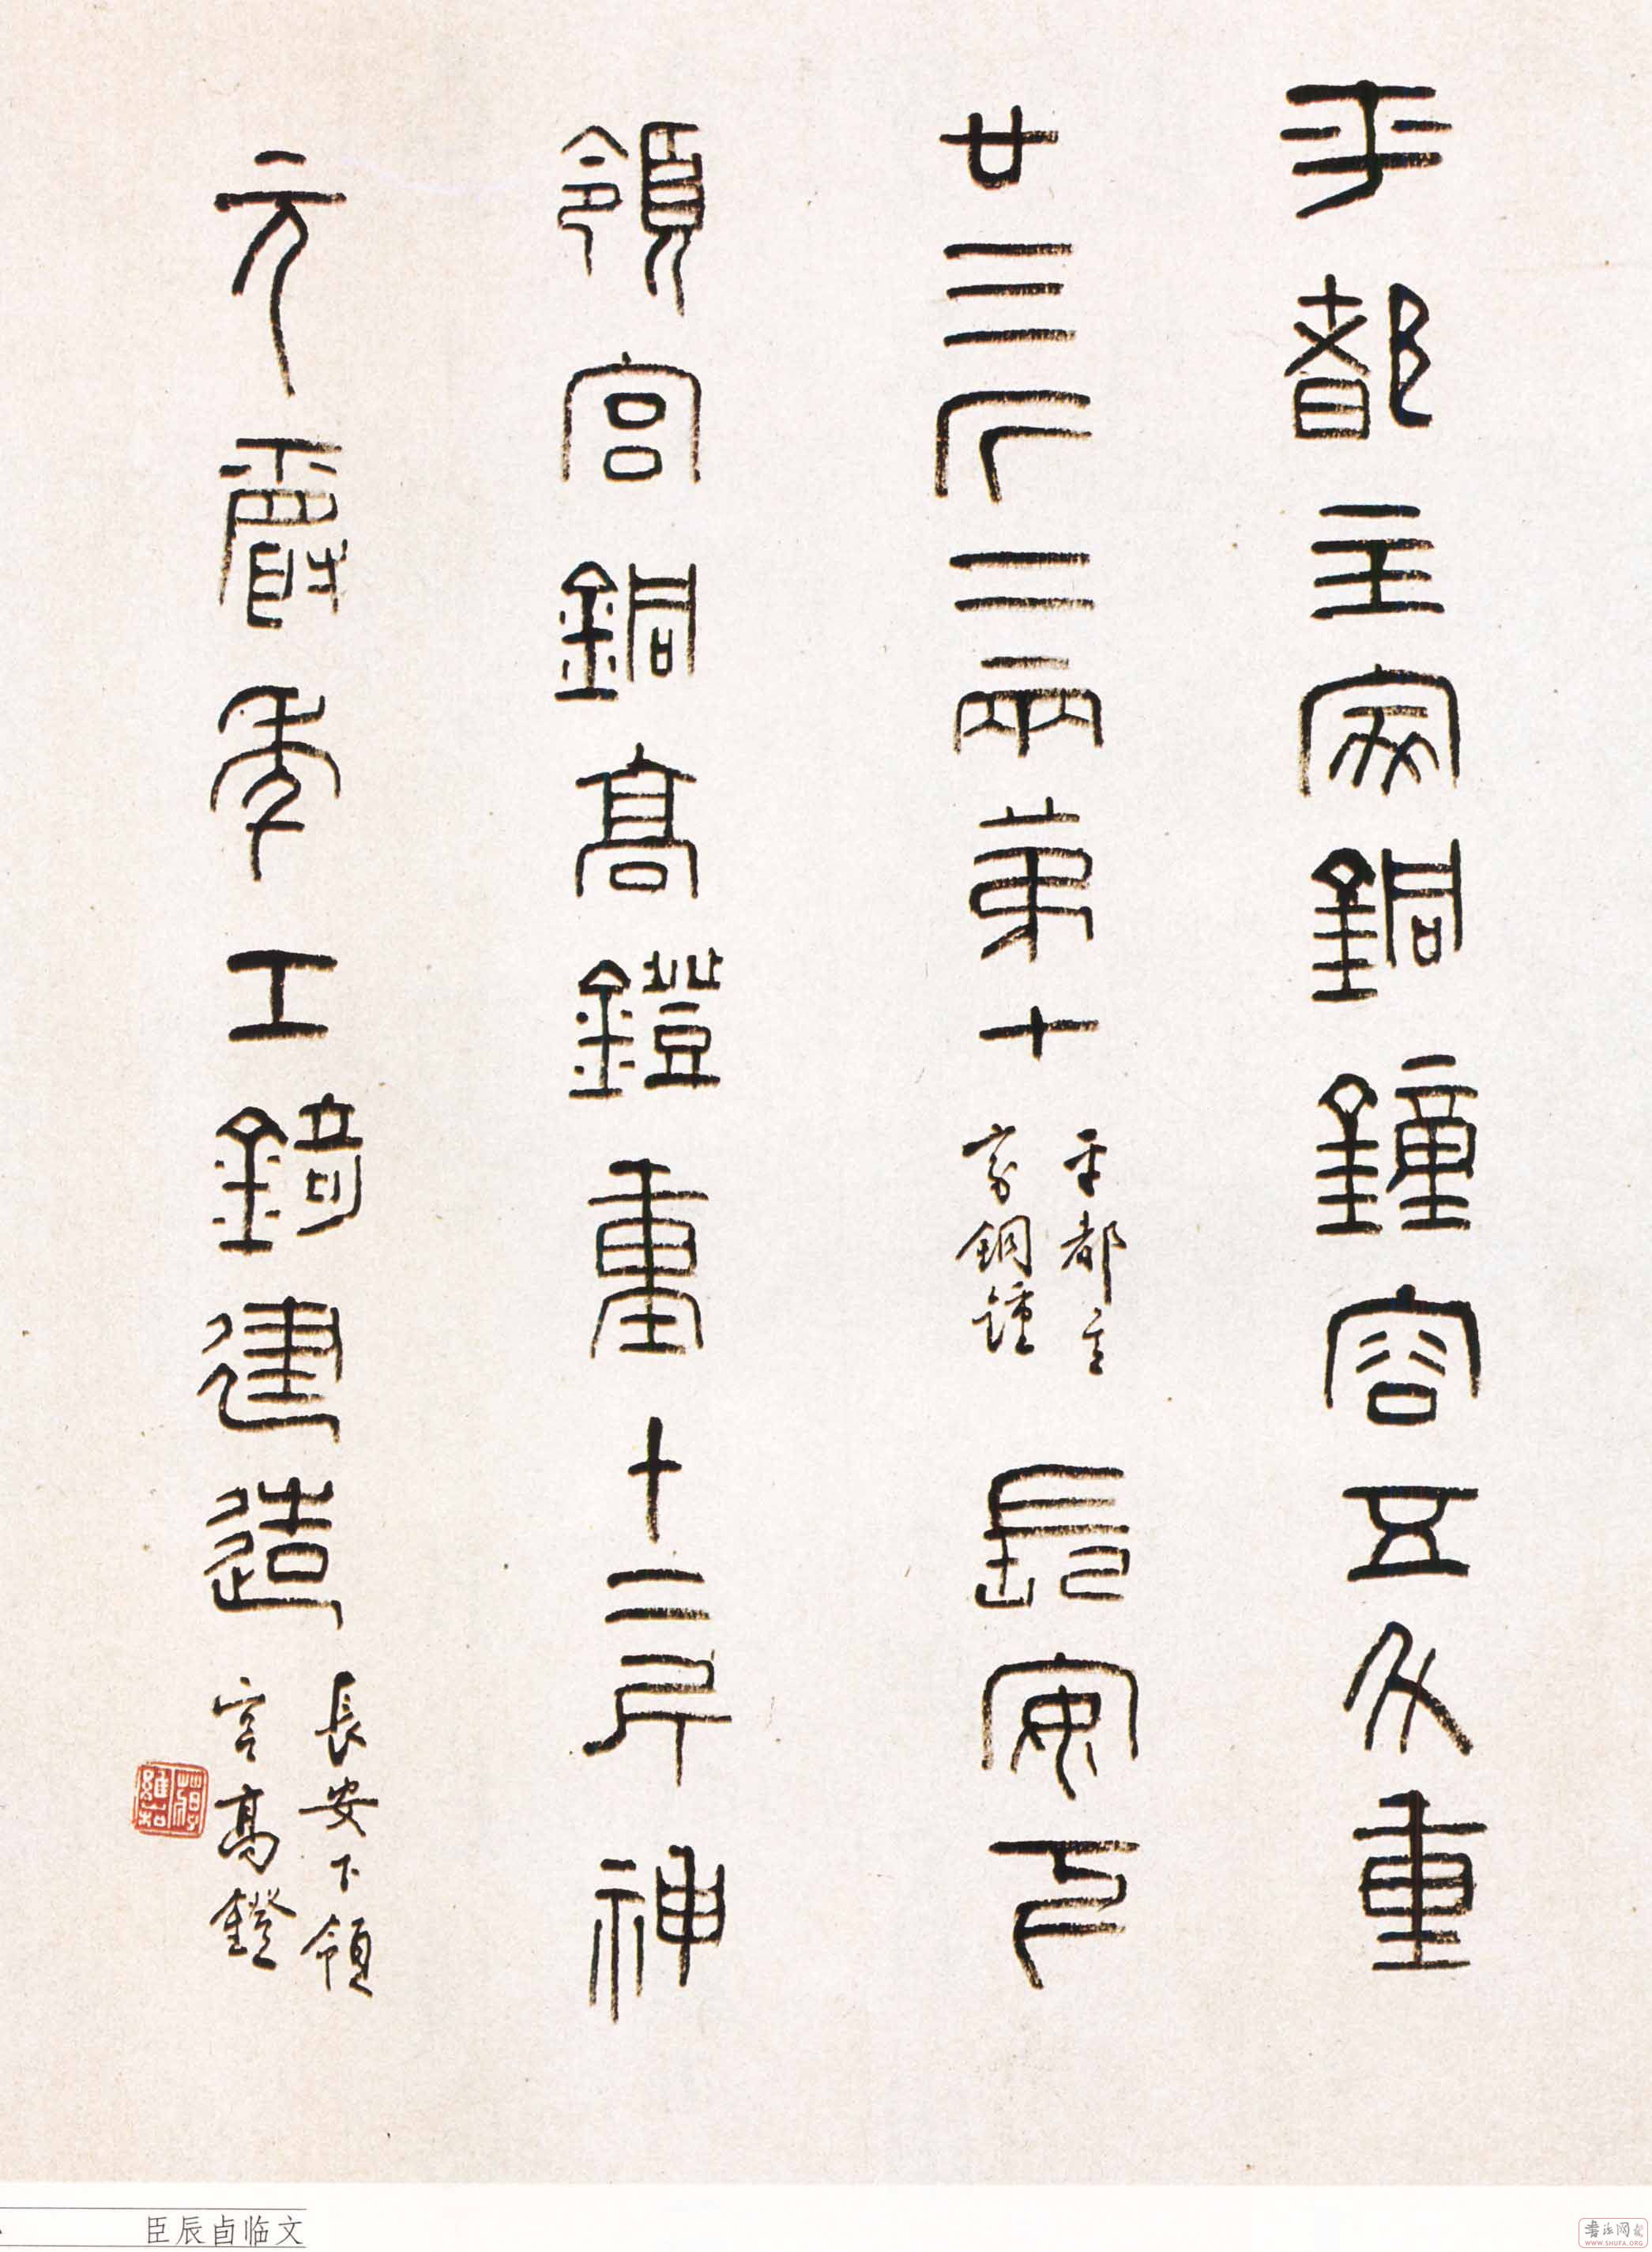 平都主家銅鐘容五斗重
廿三斤三兩弟十
平都主
家銅鍾
長安下
領宮銅高鐙重十二斤神
元爵年工錡建造
長安下領
宮高鐙
臣辰卣临文
书法网
WWW.SHUFA.ORG